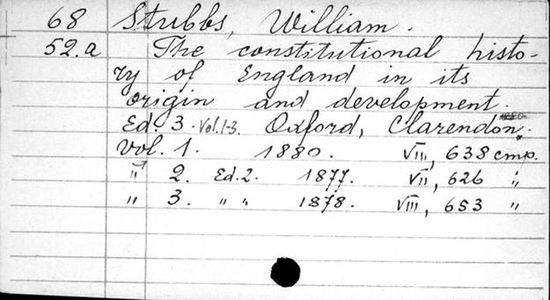 68 Stubbs, William.
52.a The constitutional histo-
ry of England in its
origin and development.
Ed. 3. Vol. 1-3. Oxford, Clarendon.
Vol. 1. 1880. VIII, 638 cmp.
" 2. Ed. 2. 1877. VII, 626 "
" 3. " " 1878. VIII, 653 "